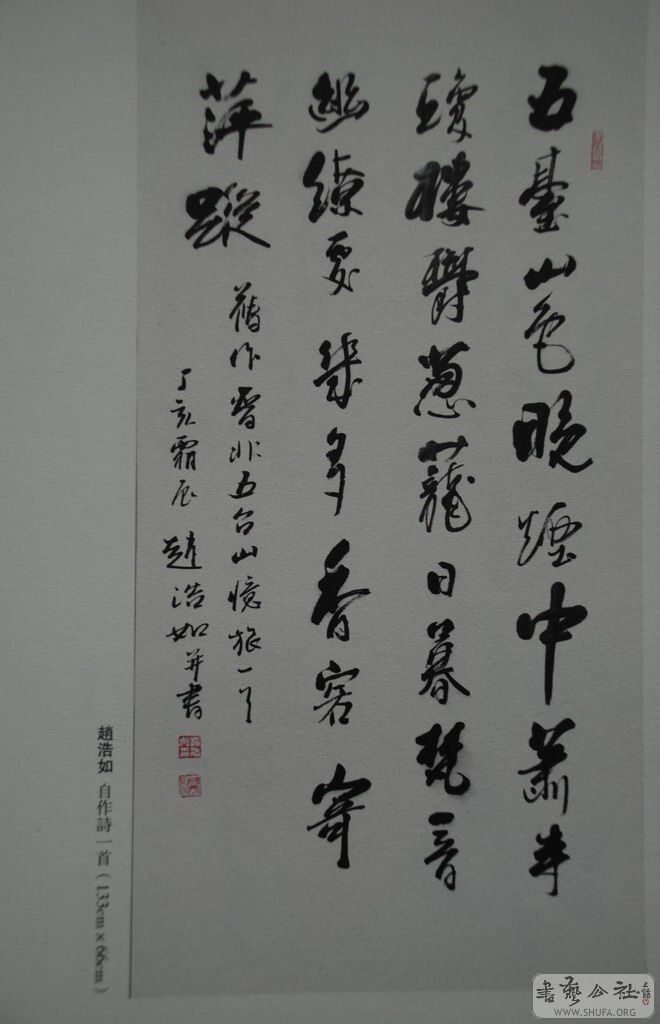 五臺山色晚煙中蕭寺
瓊樓鬱葱蘢日暮梵音
幽繚處幾多香客寄
萍蹤
舊作晋北五台山憶旅一首
丁亥霜辰趙浩如并書
趙浩如 自作詩一首（133cm×66cm）
書藝公社
WWW.SHUFA.ORG